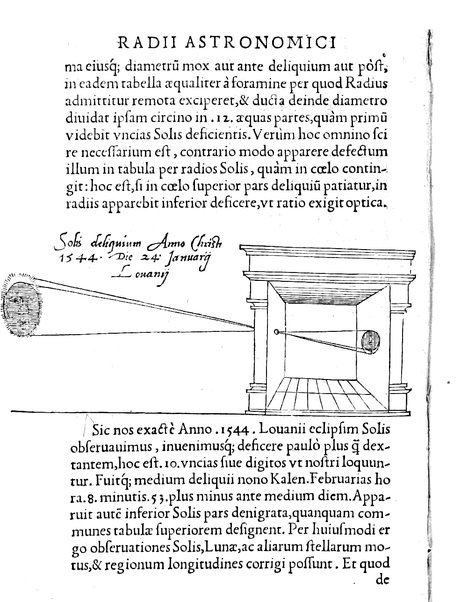 RADII ASTRONOMICI
ma eiusq́; diametrū mox aut ante deliquium aut pòst,
in eadem tabella æqualiter à foramine per quod Radius
admittitur remota exciperet,& ducta deinde diametro
diuidat ipsam circino in .12. æquas partes,quàm primū
videbit vncias Solis deficientis. Verùm hoc omnino sci
re necessarium est , contrario modo apparere defectum
illum in tabula per radios Solis , quàm in cœlo contin-
git : hoc est,si in cœlo superior pars deliquiū patiatur,in
radiis apparebit inferior deficere,vt ratio exigit optica.
Solis deliquium Anno Christi
1544. Die 24 Januarij
Louanij
Sic nos exactè Anno .1544. Louanii eclipsim Solis
obseruauimus , inuenimusq́; deficere paulò plus q̄ dex-
tantem,hoc est .10.vncias siue digitos vt nostri loquun-
tur. Fuitq́; medium deliquii nono Kalen.Februarias ho
ra.8. minutis.53.plus minus ante medium diem.Appa-
ruit autē inferior Solis pars denigrata,quanquam com-
munes tabulæ superiorem designent. Per huiusmodi er
go obseruationes Solis,Lunæ,ac aliarum stellarum mo-
tus,& regionum longitudines corrigi possunt . Et quod
de